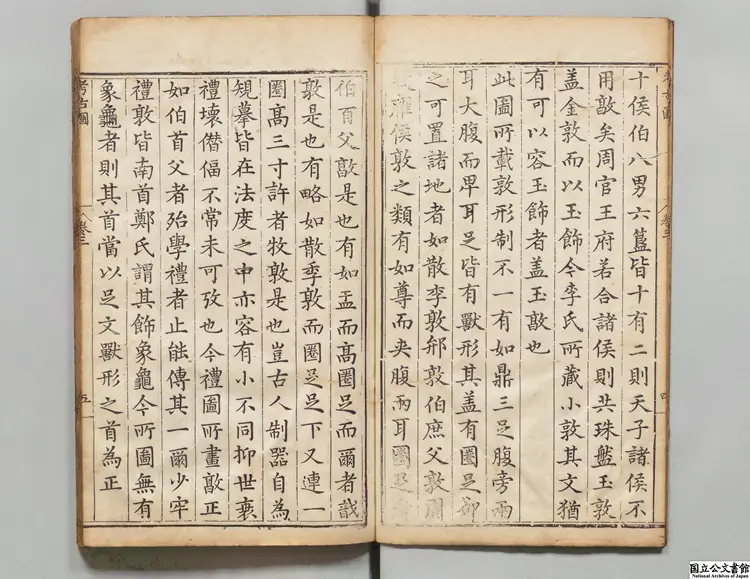 十侯伯八男六簋皆十有二則天子諸侯不
用敦矣周官王府若合諸侯則共珠盤玉敦
盖金敦而以玉飾今李氏所藏小敦其文猶
有可以容玉飾者盖玉敦也
此圖所載敦形制不一有如鼎三足腹旁兩
耳大腹而卑耳足皆有獸形其盖有圈足卻
之可置諸地者如散季敦邢敦伯庶父敦周
敦雁侯敦之類有如尊而夾腹兩耳圈足
四
伯百父敦是也有如盂而高圈足而爾者戠
敦是也有略如散季敦而圈足足下又連一
圈高三寸許者牧敦是也豈古人制器自為
規摹皆在法度之中亦容有小不同抑世衰
禮壞僭偪不常未可攷也今禮圖所畫敦正
如伯首父者殆學禮者止能傳其一爾少牢
禮敦皆南首鄭氏謂其飾象龜今所圖無有
象龜者則其首當以足文獸形之首為正
考古圖
卷三
五
国立公文書館
National Archives of Japan